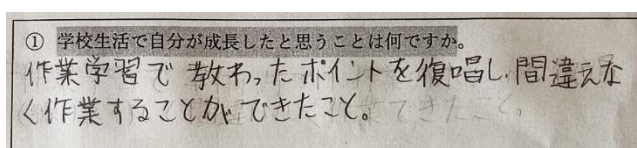 ① 学校生活で自分が成長したと思うことは何ですか。
作業学習で教わったポイントを復唱し、間違えな
く作業することができたこと。